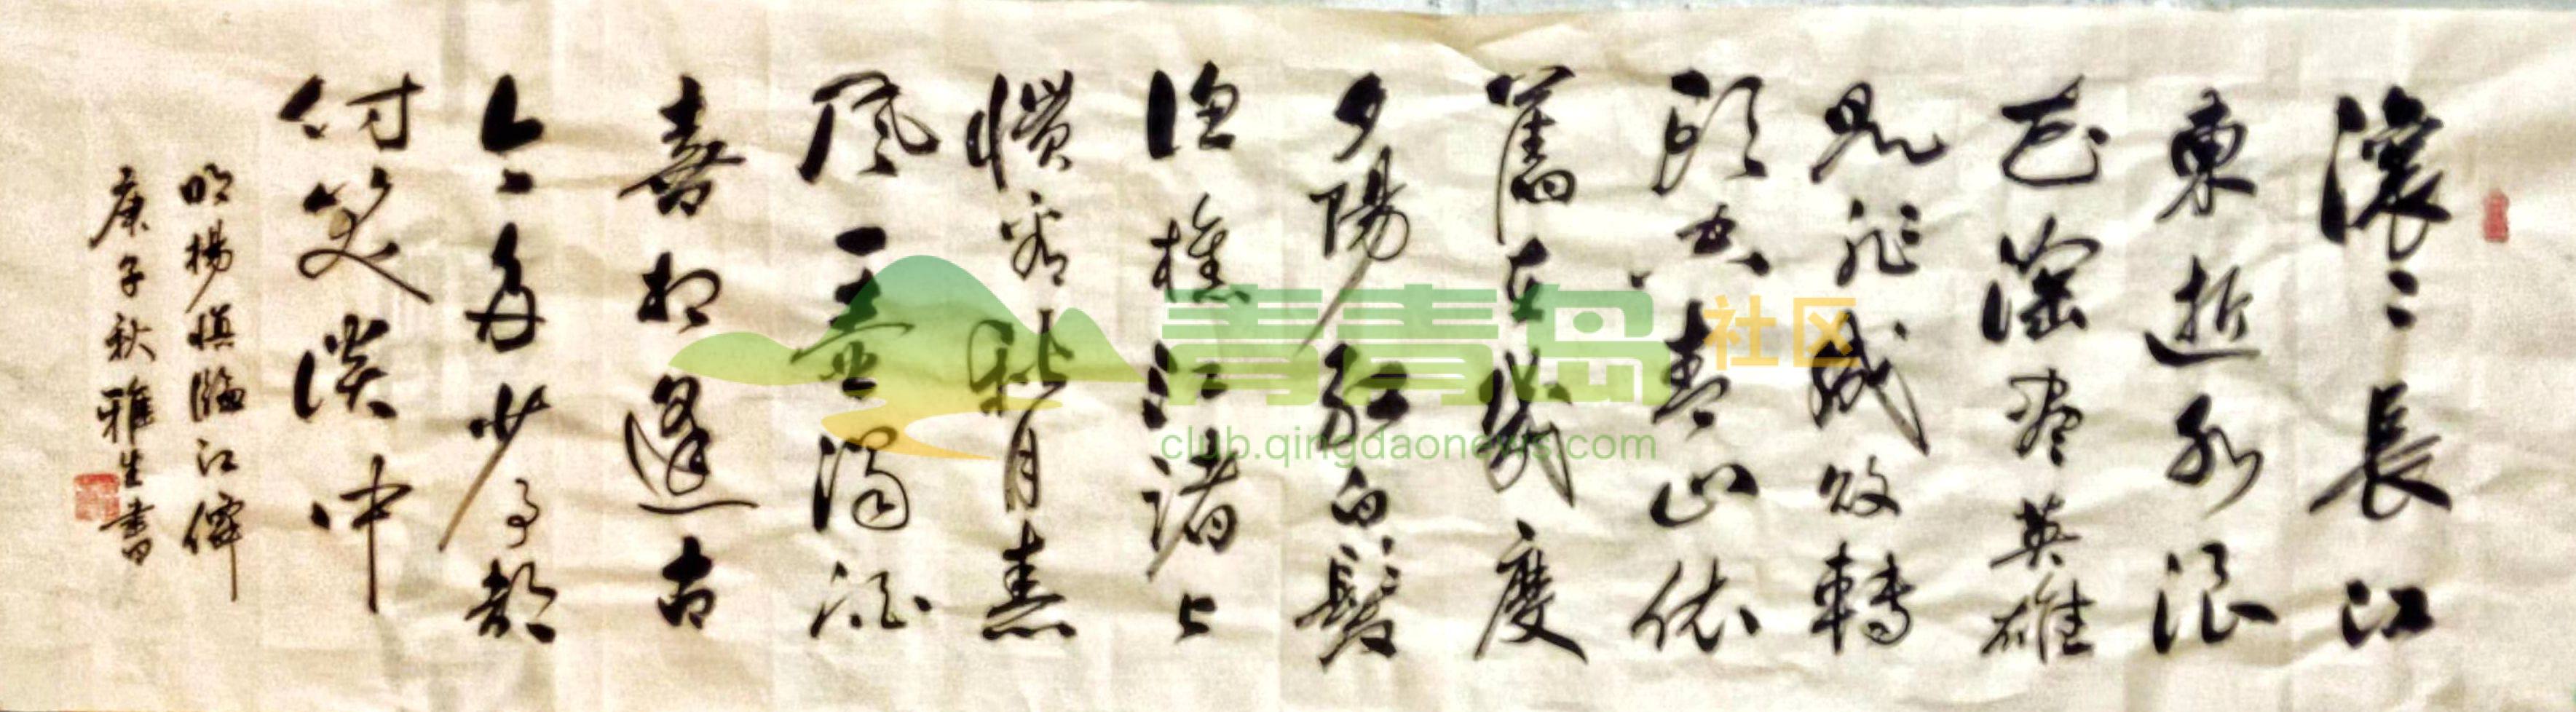 滚〻長江
東逝水浪
花淘盡英雄
是非成敗轉
頭空青山依
舊在幾度
夕陽紅白髮
渔樵江渚上
慣看秋月春
風一壺濁酒
喜相逢古
今多少事都
付笑淡中
明楊慎臨江僊
庚子秋雅生書
青青岛社区
club.qingdaonews.com